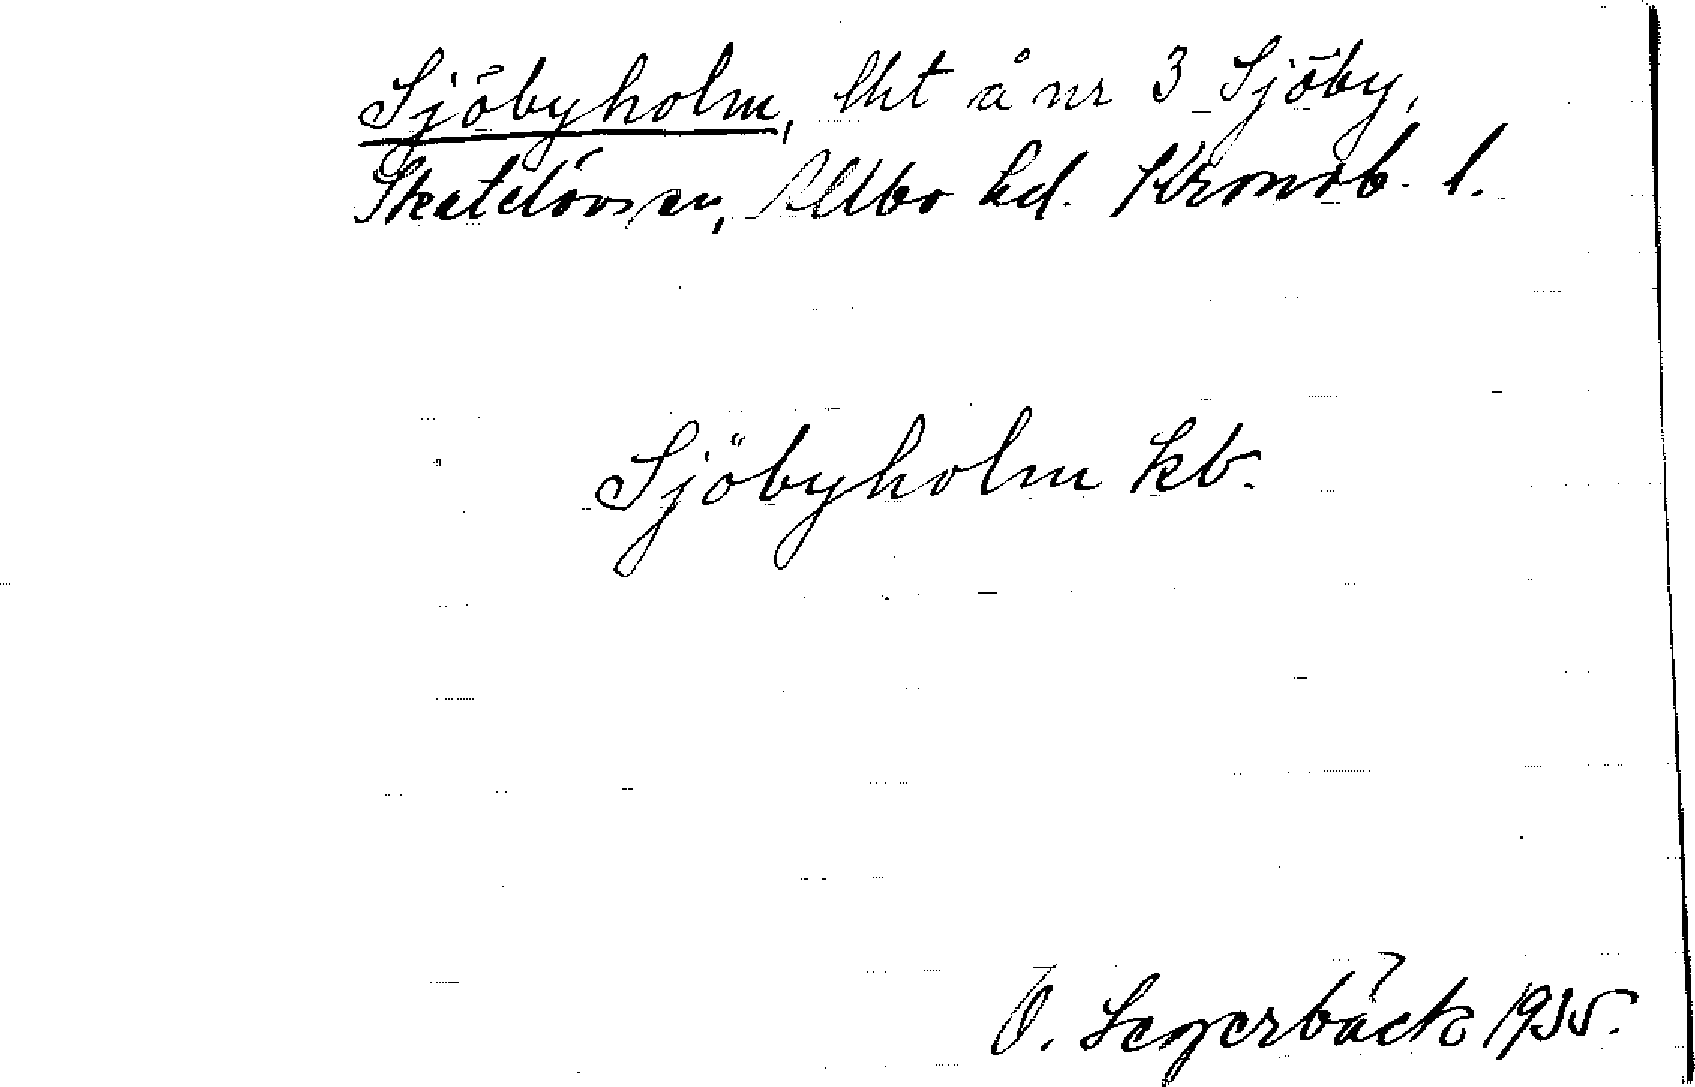 Sjöbyholm, lht å nr 3 Sjöby,
Skatelövs sn, Allbo hd. Kronob. l.
Sjöbyholm kb.
O. Segerbäck 1935.